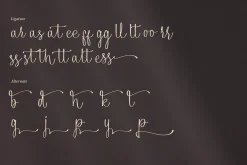 Ligature
ar as at ee ff gg ll tt oo rr
ss st th tt att ess
Alternate
b d h k t
g j p y p